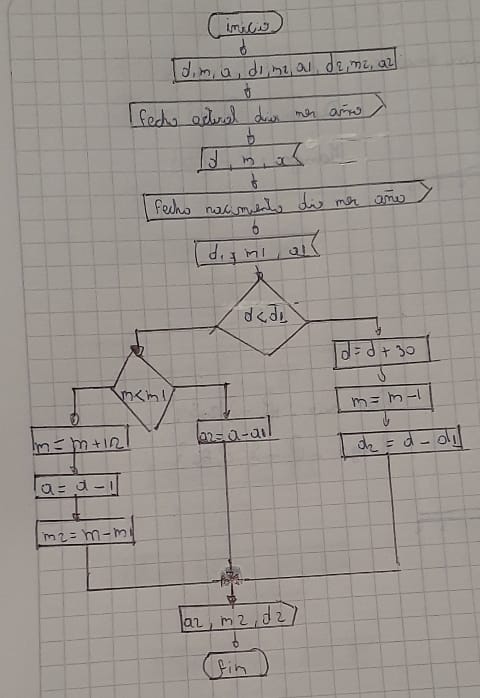 inicio
d, m, a, d1, m2, a1, d2, m2, a2
fecha actual dia mes año
d, m, a
fecha nacimiento dia mes año
d1, m1, a1
d<d1
d=d+30
m<m1
m=m-1
m=m+12
a2=a-a1
d2=d-d1
a=a-1
m2=m-m1
a2, m2, d2
fin